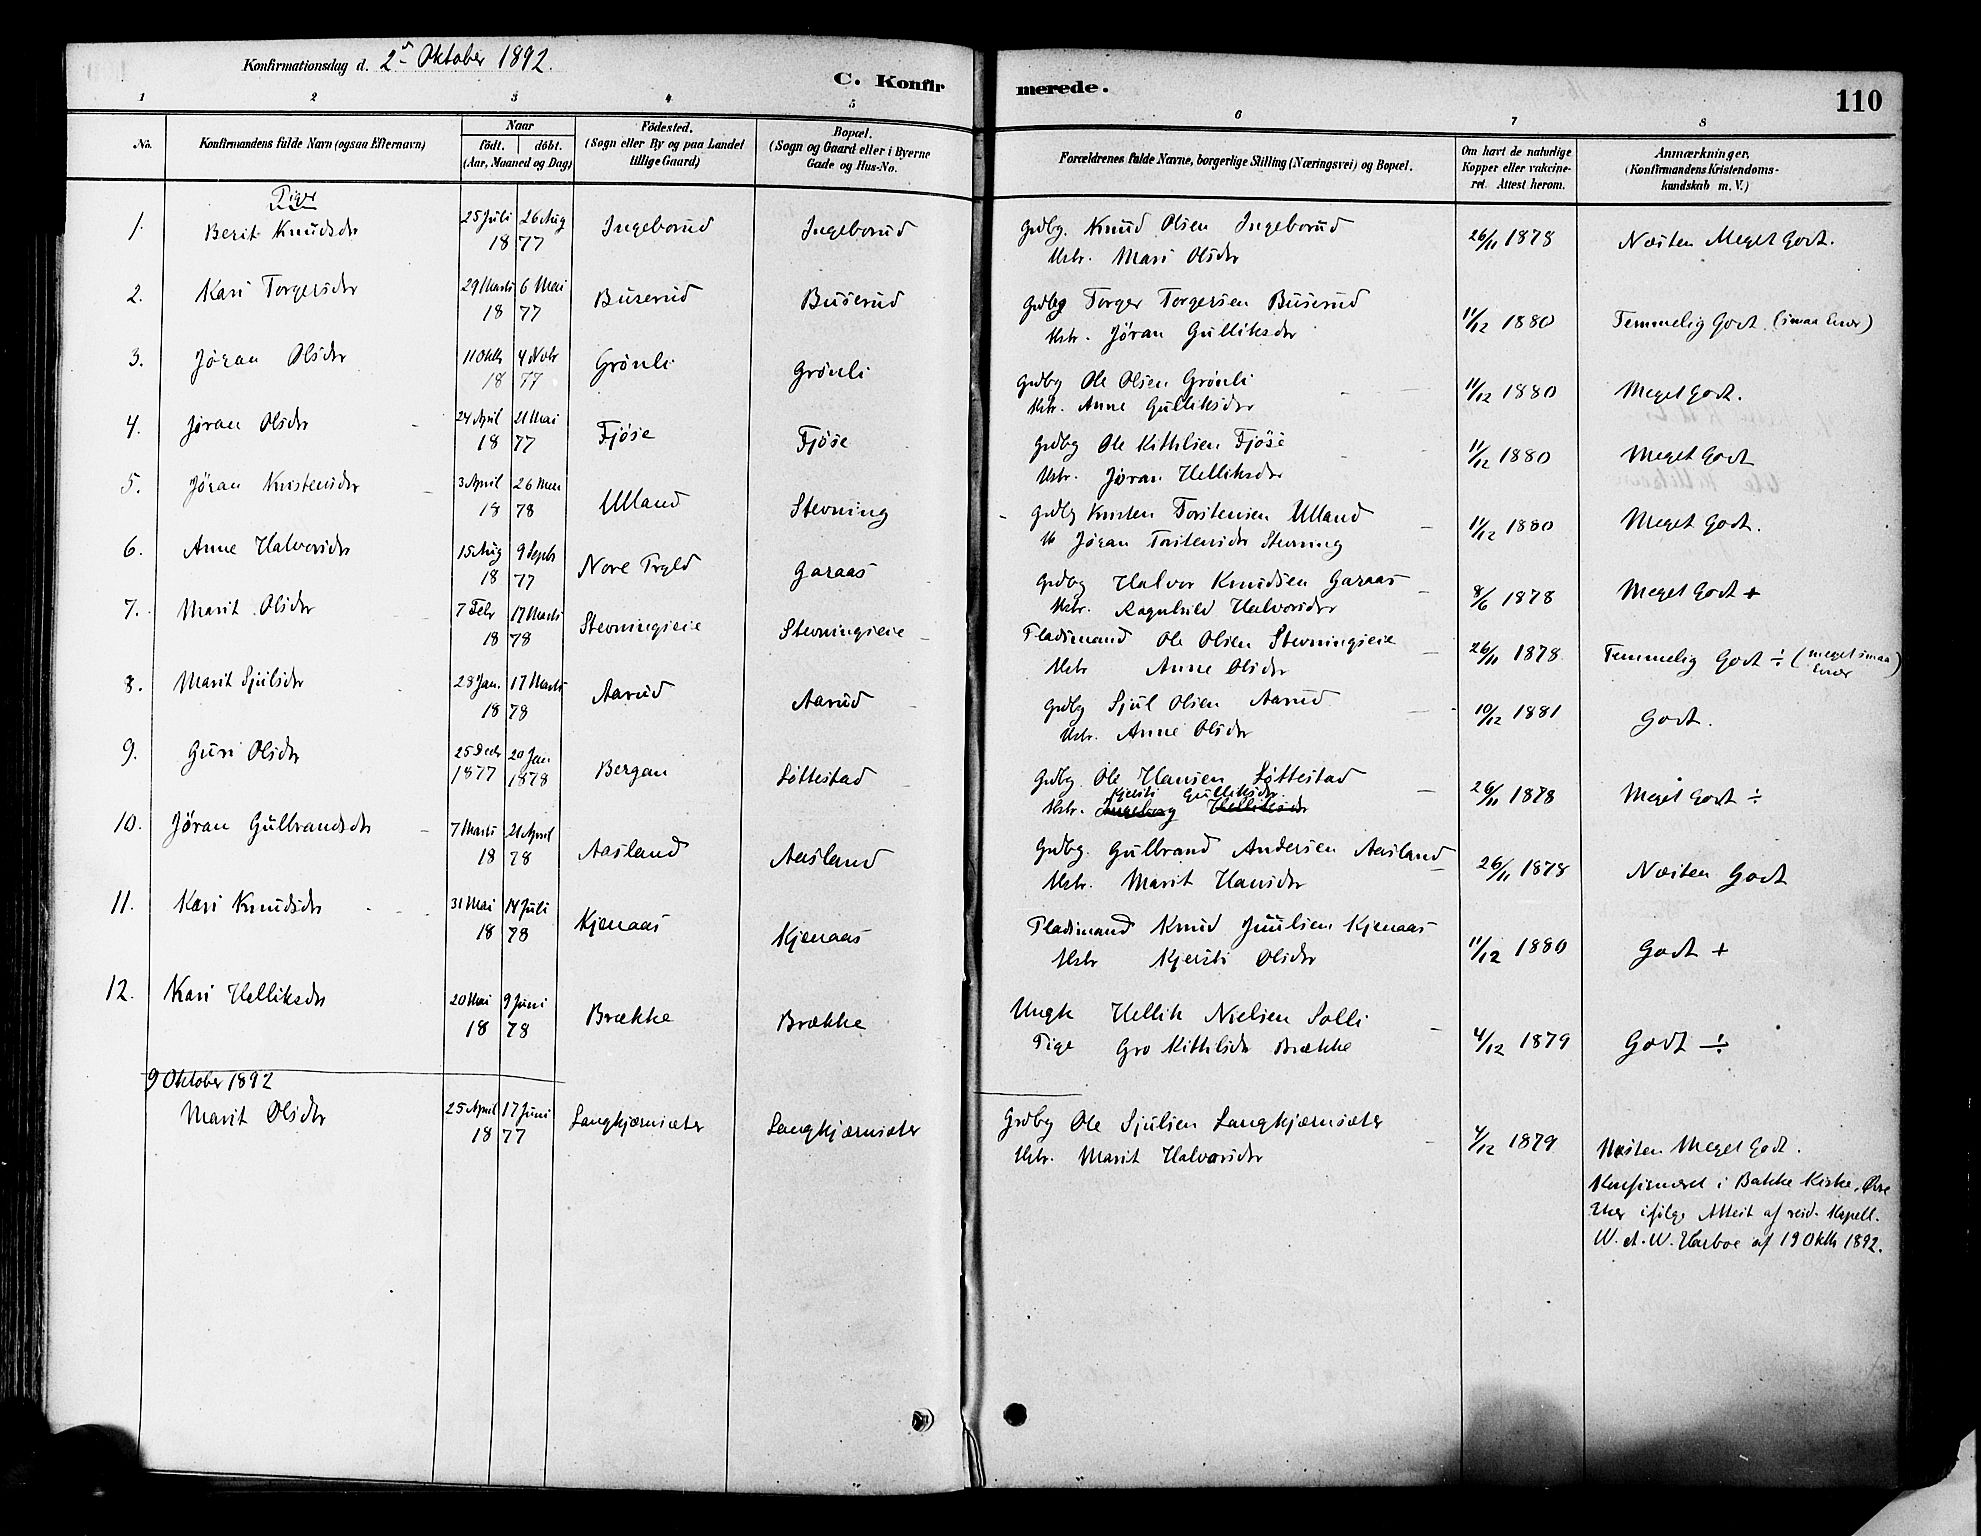 Konfirmationsdag d. 2den Oktober 1892.
C. Konfirmerede.
110
1 2 3 4 5 6 7 8
No.
Konfirmandens fulde Navn (ogsaa Efternavn)
Naar
født. døbt.
(Aar, Maaned og Dag)
Fødested.
(Sogn eller By og paa Landet
tillige Gaard)
Bopæl.
(Sogn og Gaard eller i Byerne
Gade og Hus-No.
Forældrenes fulde Navne, borgerlige Stilling (Næringsvei) og Bopæl.
Om havt de naturlige
Kopper eller vakcine-
ret. Attest herom.
Anmærkninger,
(Konfirmandens Kristendoms-
kundskab m. V.)
Piger
1. Berit Knudsdr 25 Juli 26 Aug 18 77 Ingeborud Ingeborud Grdbg. Knud Olsen Ingeborud 26/11 1878 Næsten Meget Godt.
Hstr. Mari Olsdr
2. Kari Torgersdr 29 Marts 6 Mai 18 77 Buserud Buserud Grdbg Torger Torgersen Buserud 11/12 1880 Temmelig Godt (smaa Evner)
Hstr. Jøran Gulliksdr
3. Jøran Olsdr 11 Oktb 4 Nobr 18 77 Grønli Grønli Grdbg Ole Olsen Grønli 11/12 1880 Meget Godt.
Hstr. Anne Gulliksdr
4. Jøran Olsdr 24 April 21 Mai 18 77 Fjøse Fjøse Grdbg Ole Kittilsen Fjøse 11/12 1880 Meget Godt
Hstr. Jøran Helliksdr
5. Jøran Kristensdr 3 April 26 Mai 18 78 Ulland Stevning Grdbg Kristen Torstensen Ulland 11/12 1880 Meget Godt.
H Jøran Torstensdr Stevning
6. Anne Halvorsdr 15 Aug 9 Septb 18 77 Nore Prgld Garaas Grdbg Halvor Knudsen Garaas 8/6 1878 Meget Godt +
Hstr. Ragnhild Halvorsdr
7. Marit Olsdr 7 Febr 17 Marts 18 78 Stevningseie Stevningseie Pladsmand Ole Olsen Stevningseie 26/11 1878 Temmelig Godt ÷ (meget smaa Evner)
Hstr Anne Olsdr
8. Marit Sjulsdr 28 Jan. 17 Marts 18 78 Aarud Aarud Grdbg Sjul Olsen Aarud 10/12 1881 Godt.
Hstr. Anne Olsdr
9. Guri Olsdr 25 Decbr 1877 20 Jan 1878 Bergan Søttestad Grdbg. Ole Hansen Søttestad 26/11 1878 Meget Godt ÷
Kjersti Gulliksdr
Hstr. Ingeborg Helliksdr
10. Jøran Gulbrandsdr 7 Marts 21 April 18 78 Aasland Aasland Grdbg. Gulbrand Andersen Aasland 26/11 1878 Næsten Godt
Hstr. Marit Hansdr
11. Kari Knudsdr 31 Mai 14 Juli 18 78 Kjenaas Kjenaas Pladsmand Knud Juulsen Kjenaas 11/12 1880 Godt +
Hstr Kjersti Olsdr
12. Kari Helliksdr 20 Mai 9 Juni 18 78 Brække Brække Ungk Hellik Nielsen Solli 4/12 1879 Godt ÷
Pige Gro Kittilsdr Brække
9 Oktober 1892
Marit Olsdr 25 April 17 Juni 18 77 Langkjærnsæter Langkjærnsæter Grdbg Ole Sjulsen Langkjærnsæter 4/12 1879 Næsten Meget Godt.
Hstr. Marit Halvorsdr
Konfirmeret i Bakke Kirke, Øvre
Eker ifølge Attest af resid. Kapell.
W. A. W. Harboe af 19 Oktb 1892.